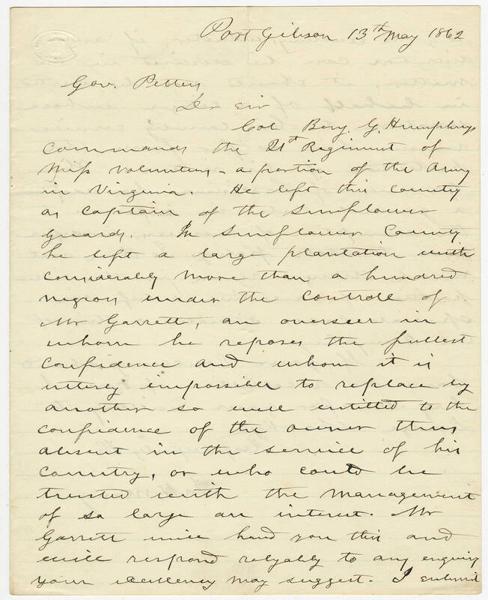 Port Gibson 13th May 1862
Gov. Pettus
Dr sir
Col Benj. G. Humphreys
commands the 21st Regiment of
Miss Volunteers - a portion of the Army
in Virginia. He left this country
as captain of the Sunflower
Guards. In Sunflower County
he left a large plantation with
considerably more than a hundred
negroes under the controle of
Mr Garrett, an overseer in
whom he reposes the fullest
confidence and whom it is
utterly impossible to replace by
another so well entitled to the
confidence of the owner thus
absent in the service of his
country, or who could be
trusted with the management
of so large an interest. Mr
Garrett will hand you this and
will respond relyably to any enquiry
your excellency may suggest. I submit